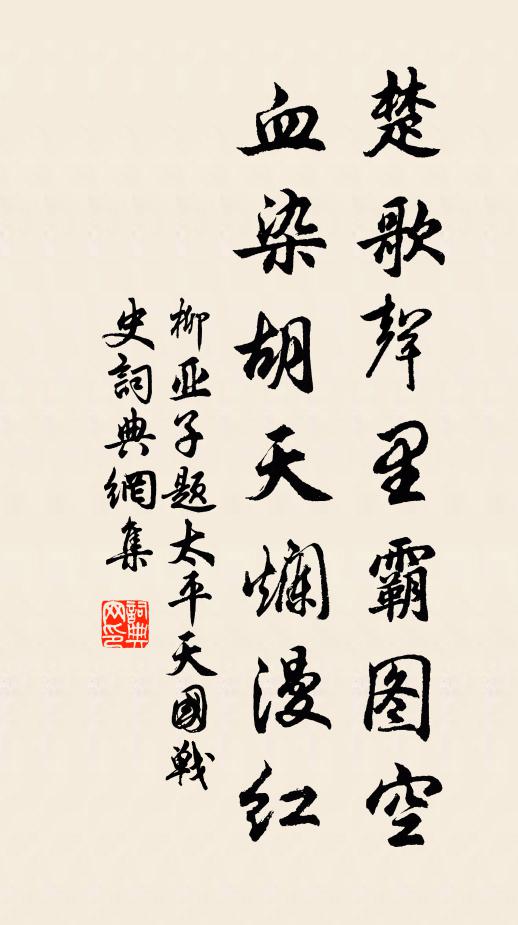 楚歌聲里霸图空
血染胡天爛漫红
柳亚子题太平天國戦
史詞典網集
詞典网印